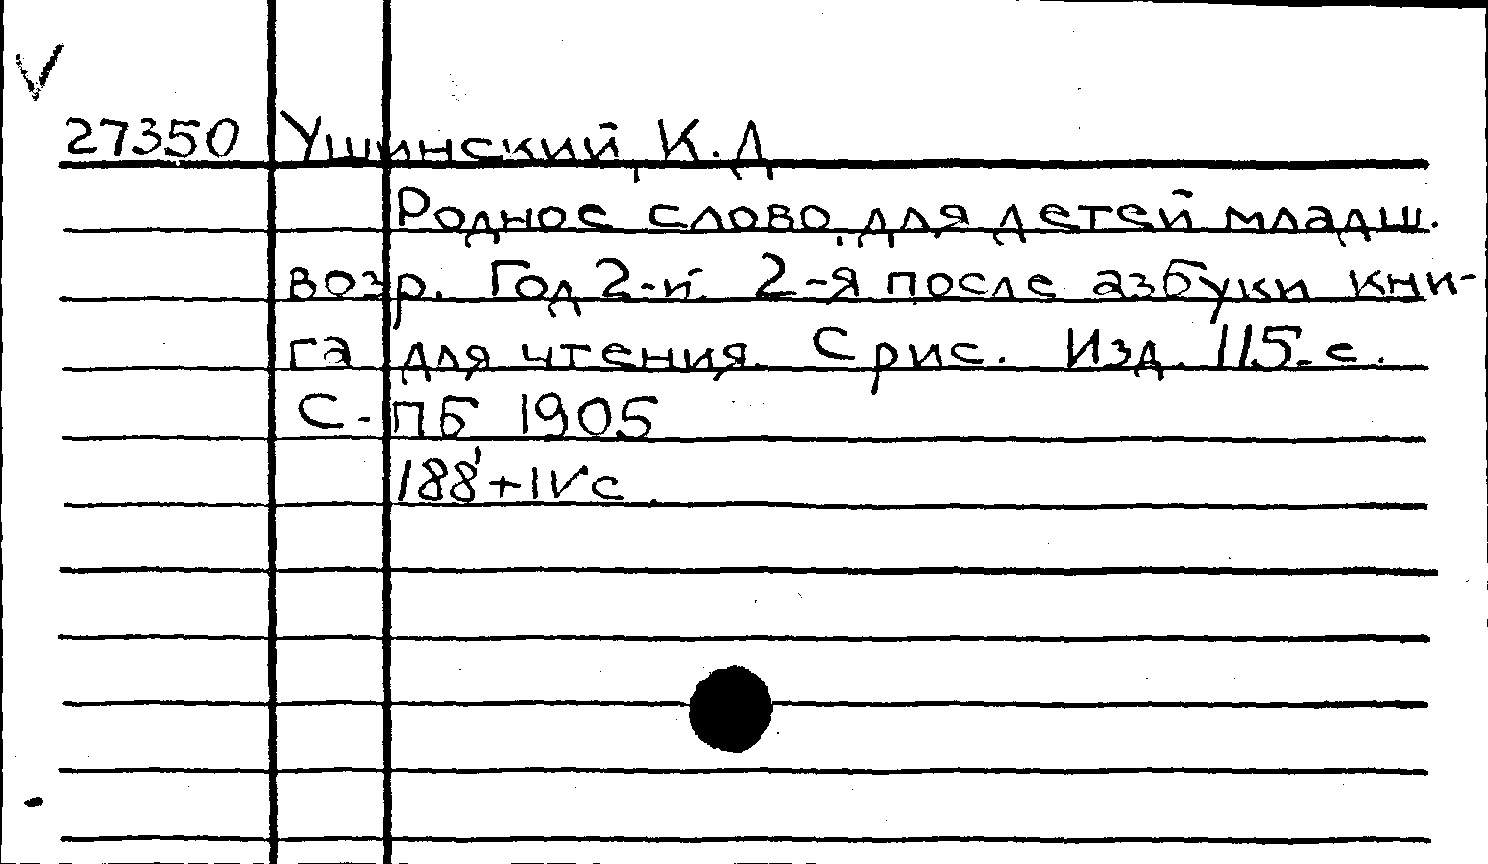 27350 Ушинский, К. Д
Родное слово, для детей младш.
возр. Год 2-й. 2-я после азбуки кни-
га для чтения. С рис. Изд. 115-е.
С-ПБ 1905
188+IV с.